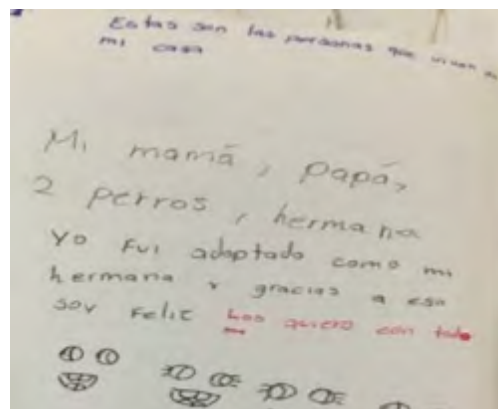 Estas son las personas que viven en
mi casa
Mi mamá, papá,
2 perros, hermana
Yo fui adoptado como mi
hermana y gracias a eso
soy feliz Los quiero con todo